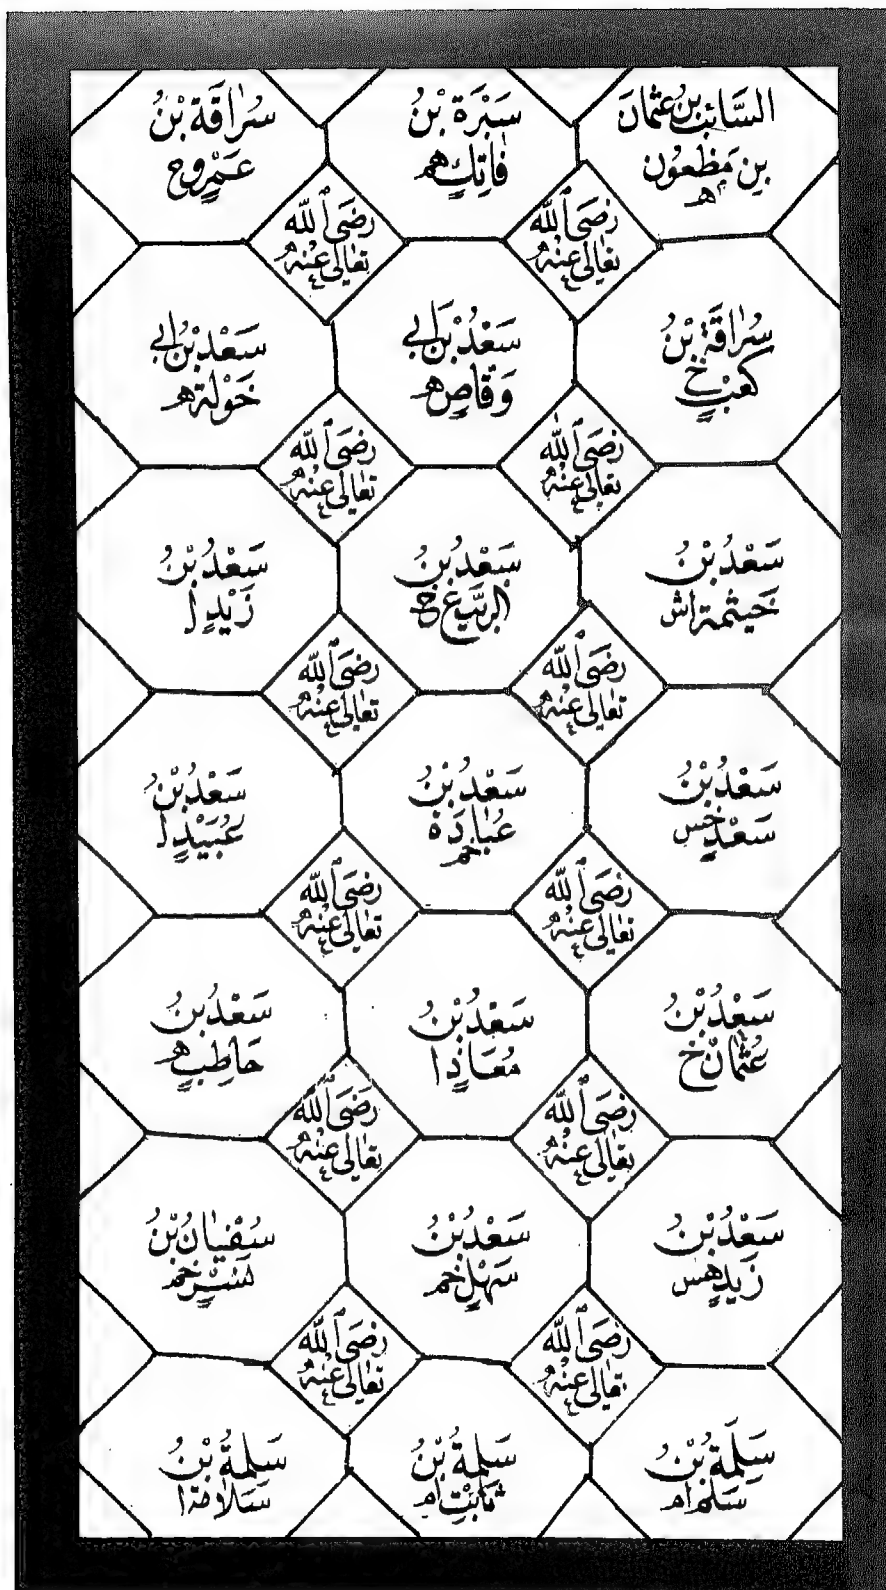 السَّائِبُ بْنُ عُثْمَانَ
بِنِ مَظْعُونٍ
مه
سَبْرَةُ بْنُ
فَاتِكٍ هم
سُرَاقَةُ بْنُ
عَمْرٍو خ
رَضِيَ ٱللّٰهُ
تَعَالٰى عَنْهُ
رَضِيَ ٱللّٰهُ
تَعَالٰى عَنْهُ
سُرَاقَةُ بْنُ
كَعْبٍ خ
سَعْدُ بْنُ أَبِي
وَقَّاصٍ هم
سَعْدُ بْنُ أَبِي
خَوْلَةَ هم
رَضِيَ ٱللّٰهُ
تَعَالٰى عَنْهُ
رَضِيَ ٱللّٰهُ
تَعَالٰى عَنْهُ
سَعْدُ بْنُ
خَيْثَمَةَ اش
سَعْدُ بْنُ
الرَّبِيْعِ خ
سَعْدُ بْنُ
زَيْدٍ ا
رَضِيَ ٱللّٰهُ
تَعَالٰى عَنْهُ
رَضِيَ ٱللّٰهُ
تَعَالٰى عَنْهُ
سَعْدُ بْنُ
سَعْدٍ خس
سَعْدُ بْنُ
عُبَادَةَ خم
سَعْدُ بْنُ
عُبَيْدٍ ا
رَضِيَ ٱللّٰهُ
تَعَالٰى عَنْهُ
رَضِيَ ٱللّٰهُ
تَعَالٰى عَنْهُ
سَعْدُ بْنُ
عُثْمَانَ خ
سَعْدُ بْنُ
مُعَاذٍ ا
سَعْدُ بْنُ
حَاطِبٍ هم
رَضِيَ ٱللّٰهُ
تَعَالٰى عَنْهُ
رَضِيَ ٱللّٰهُ
تَعَالٰى عَنْهُ
سَعْدُ بْنُ
زَيْدٍ هس
سَعْدُ بْنُ
سَهْلٍ خم
سُفْيَانُ بْنُ
رَضِيَ ٱللّٰهُ
تَعَالٰى عَنْهُ
رَضِيَ ٱللّٰهُ
تَعَالٰى عَنْهُ
سَلِمَةُ بْنُ
سَلَمَ ام
سَلِمَةُ بْنُ
ثَابِتٍ ام
سَلِمَةُ بْنُ
سَلَامَةَ ا